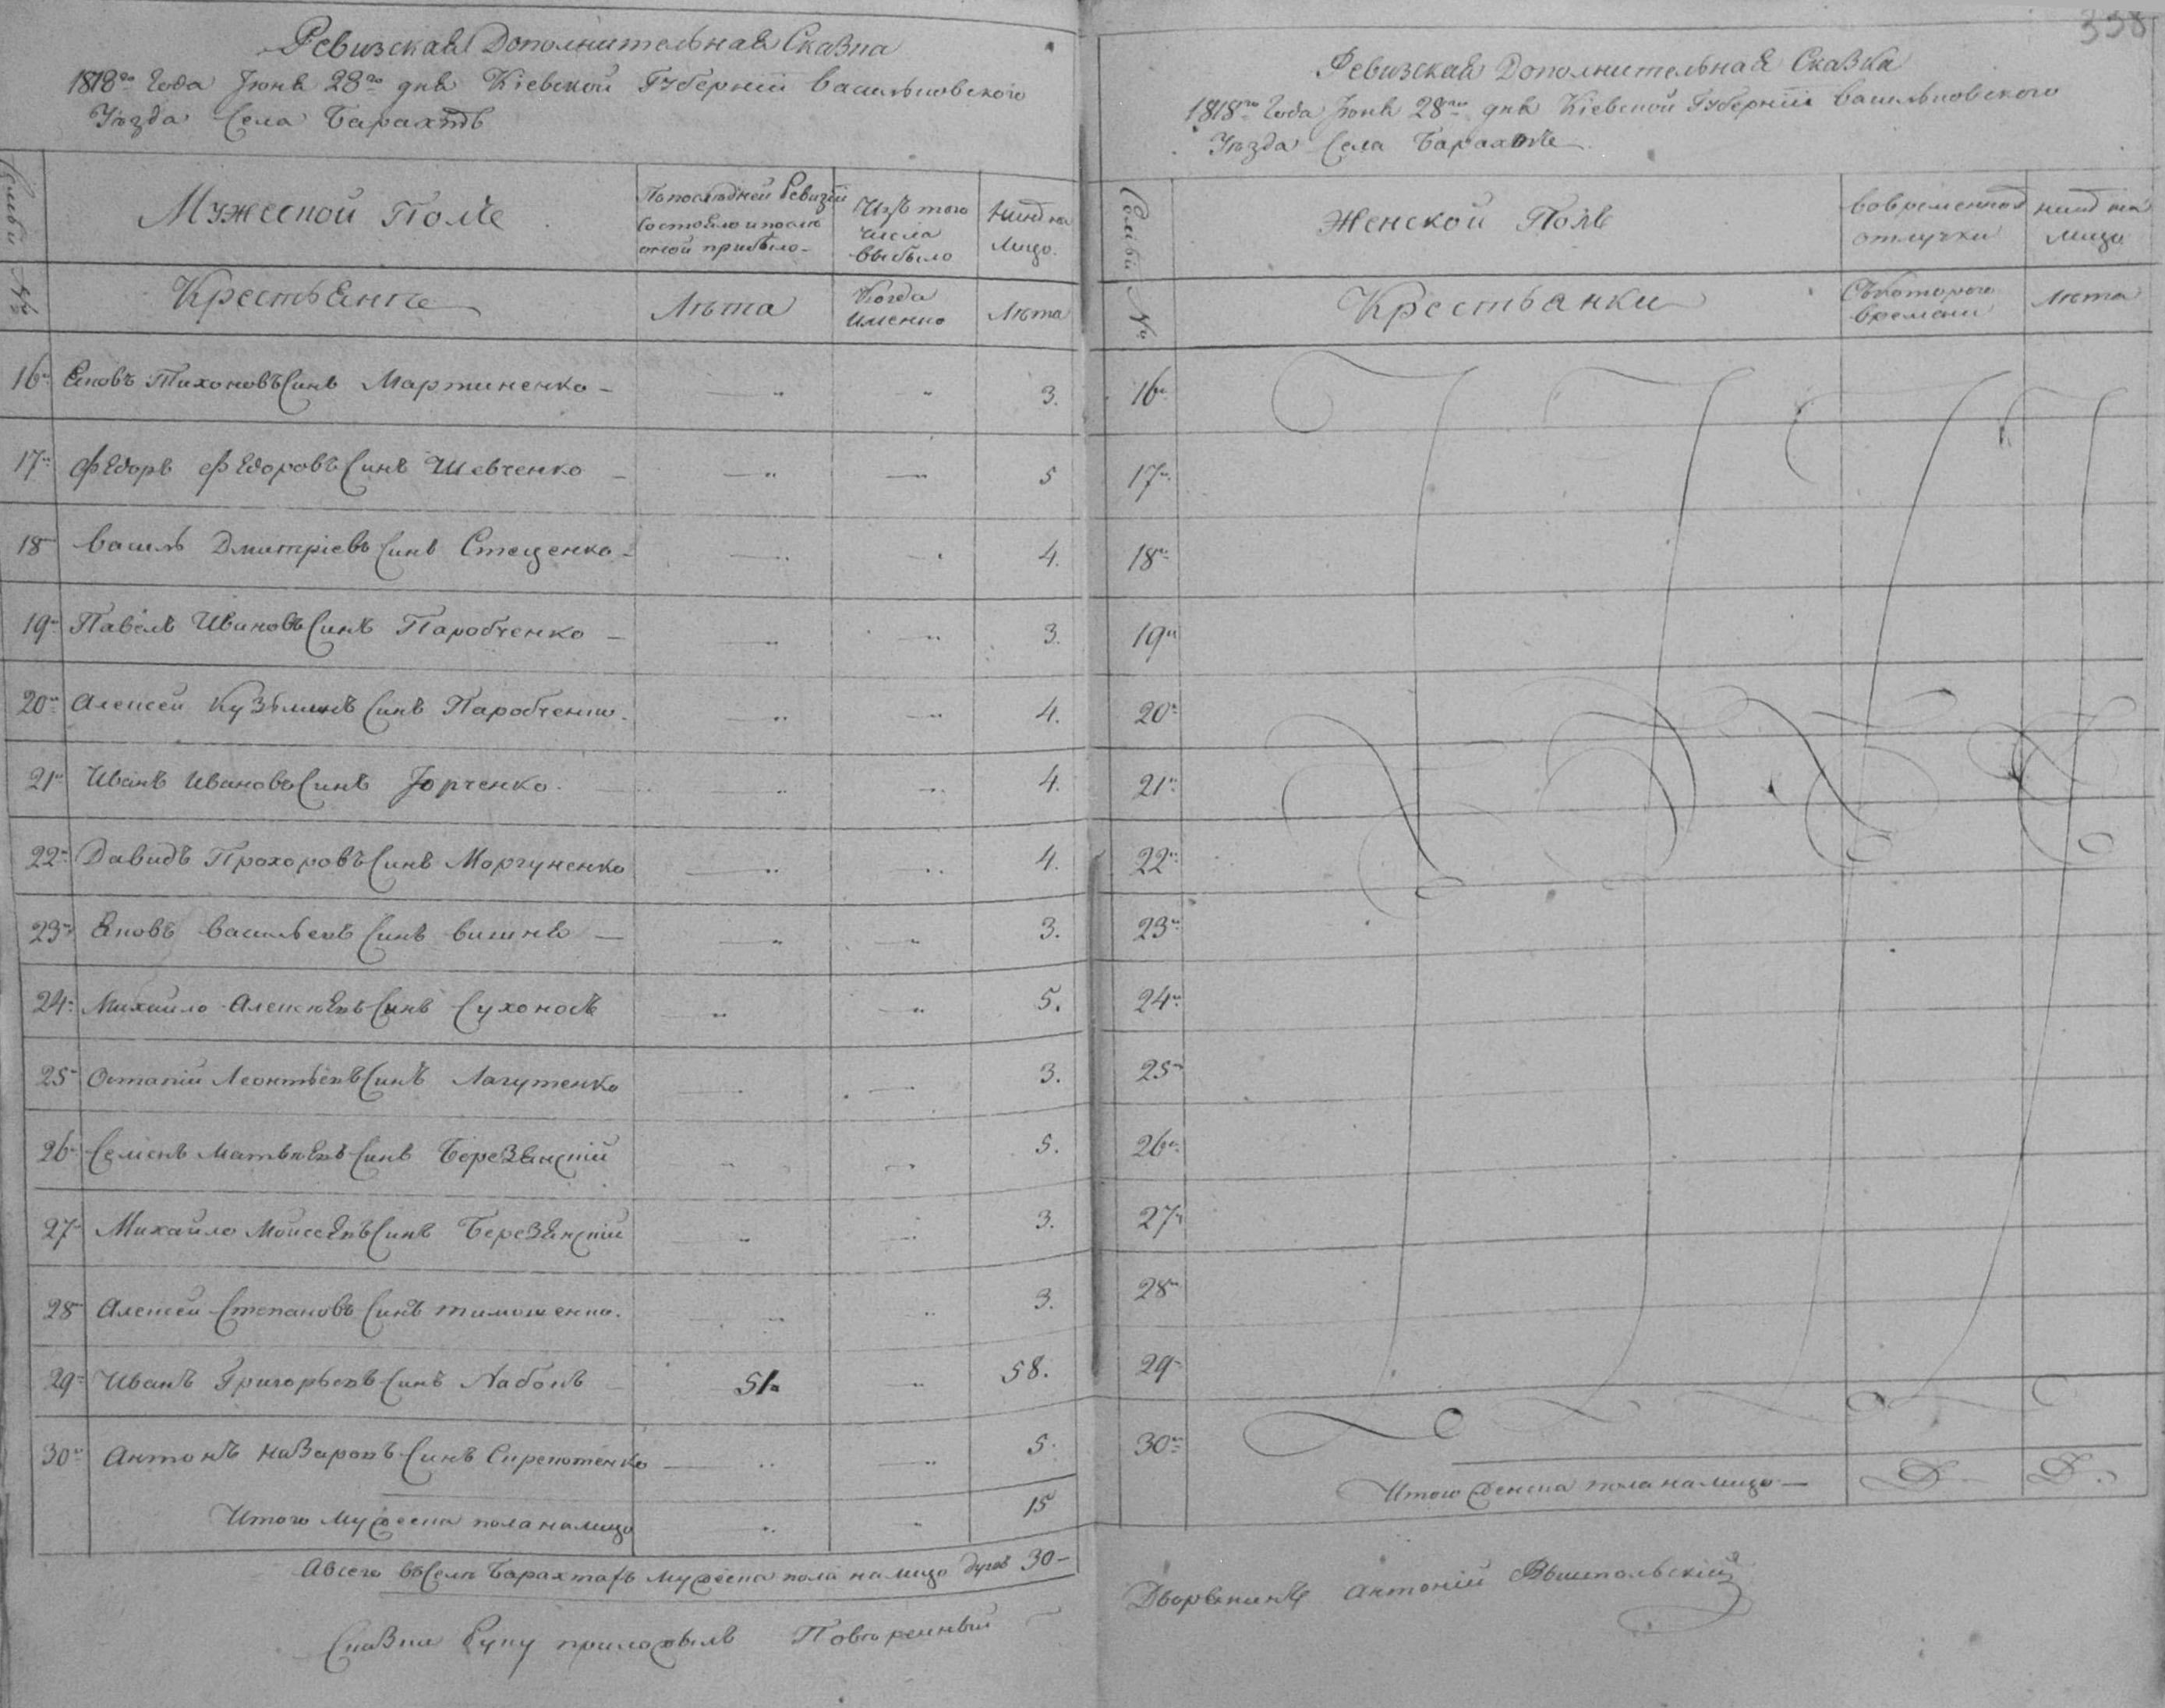 Ревизская Дополнительная Сказка
1818го Года Июня 28го дня Кіевской Губерніи Васильковского
Уѣзда Села Барахтъ
Семьи №
Мужеской Полъ
По последней Ревизіи состояло и после оной прибыло
Изъ того числа выбыло
Нинѣ на лицо.
Крестьяне
Лѣта
Когда именно
Лѣта
16 Яковъ Тихоновъ Синъ Мартиненко - 3.
17 Федоръ Федоровъ Синъ Шевченко - 5
18 Василь Дмитріевъ Синъ Стеценко - 4.
19 Павелъ Ивановъ Синъ Паробченко - 3.
20 Алексей Кузьминъ Синъ Паробченко. 4.
21 Иванъ Ивановъ Синъ Юрченко. 4.
22 Давидъ Прохоровъ Синъ Моргуненко 4.
23 Яковъ Васильевъ Синъ Вишня - 3.
24 Михайло Алексѣевъ Синъ Сухоносъ 5.
25 Остапій Леонтьевъ Синъ Лагутенко 3.
26 Семенъ Матвѣевъ Синъ Березянскій 5.
27 Михайло Моисеевъ Синъ Березянскій 3.
28 Алексей Степановъ Синъ Тимошенко. 3.
29 Иванъ Григорьевъ Синъ Лабонъ 51 58.
30 Антонъ Назаровъ Синъ Сиренотенко 5.
Итого мужеска пола на лицо 15
А всего въ Селе Барахтахъ мужеска пола на лицо душъ 30-
Сказки Руку приложилъ Поверенный
338
Ревизская Дополнительная Сказка
1818го Года Июня 28го дня Кіевской Губерніи Васильковского
Уѣзда Села Барахтъ
Семьи №
Женской Полъ
Во временной отлучки
Нинѣ на лицо
Крестьянки
Съ которого времени
Лѣта
16
17
18
19
20
21
22
23
24
25
26
27
28
29
30
Итого женска пола на лицо -
Дворянинъ Антоній Вышпольскій